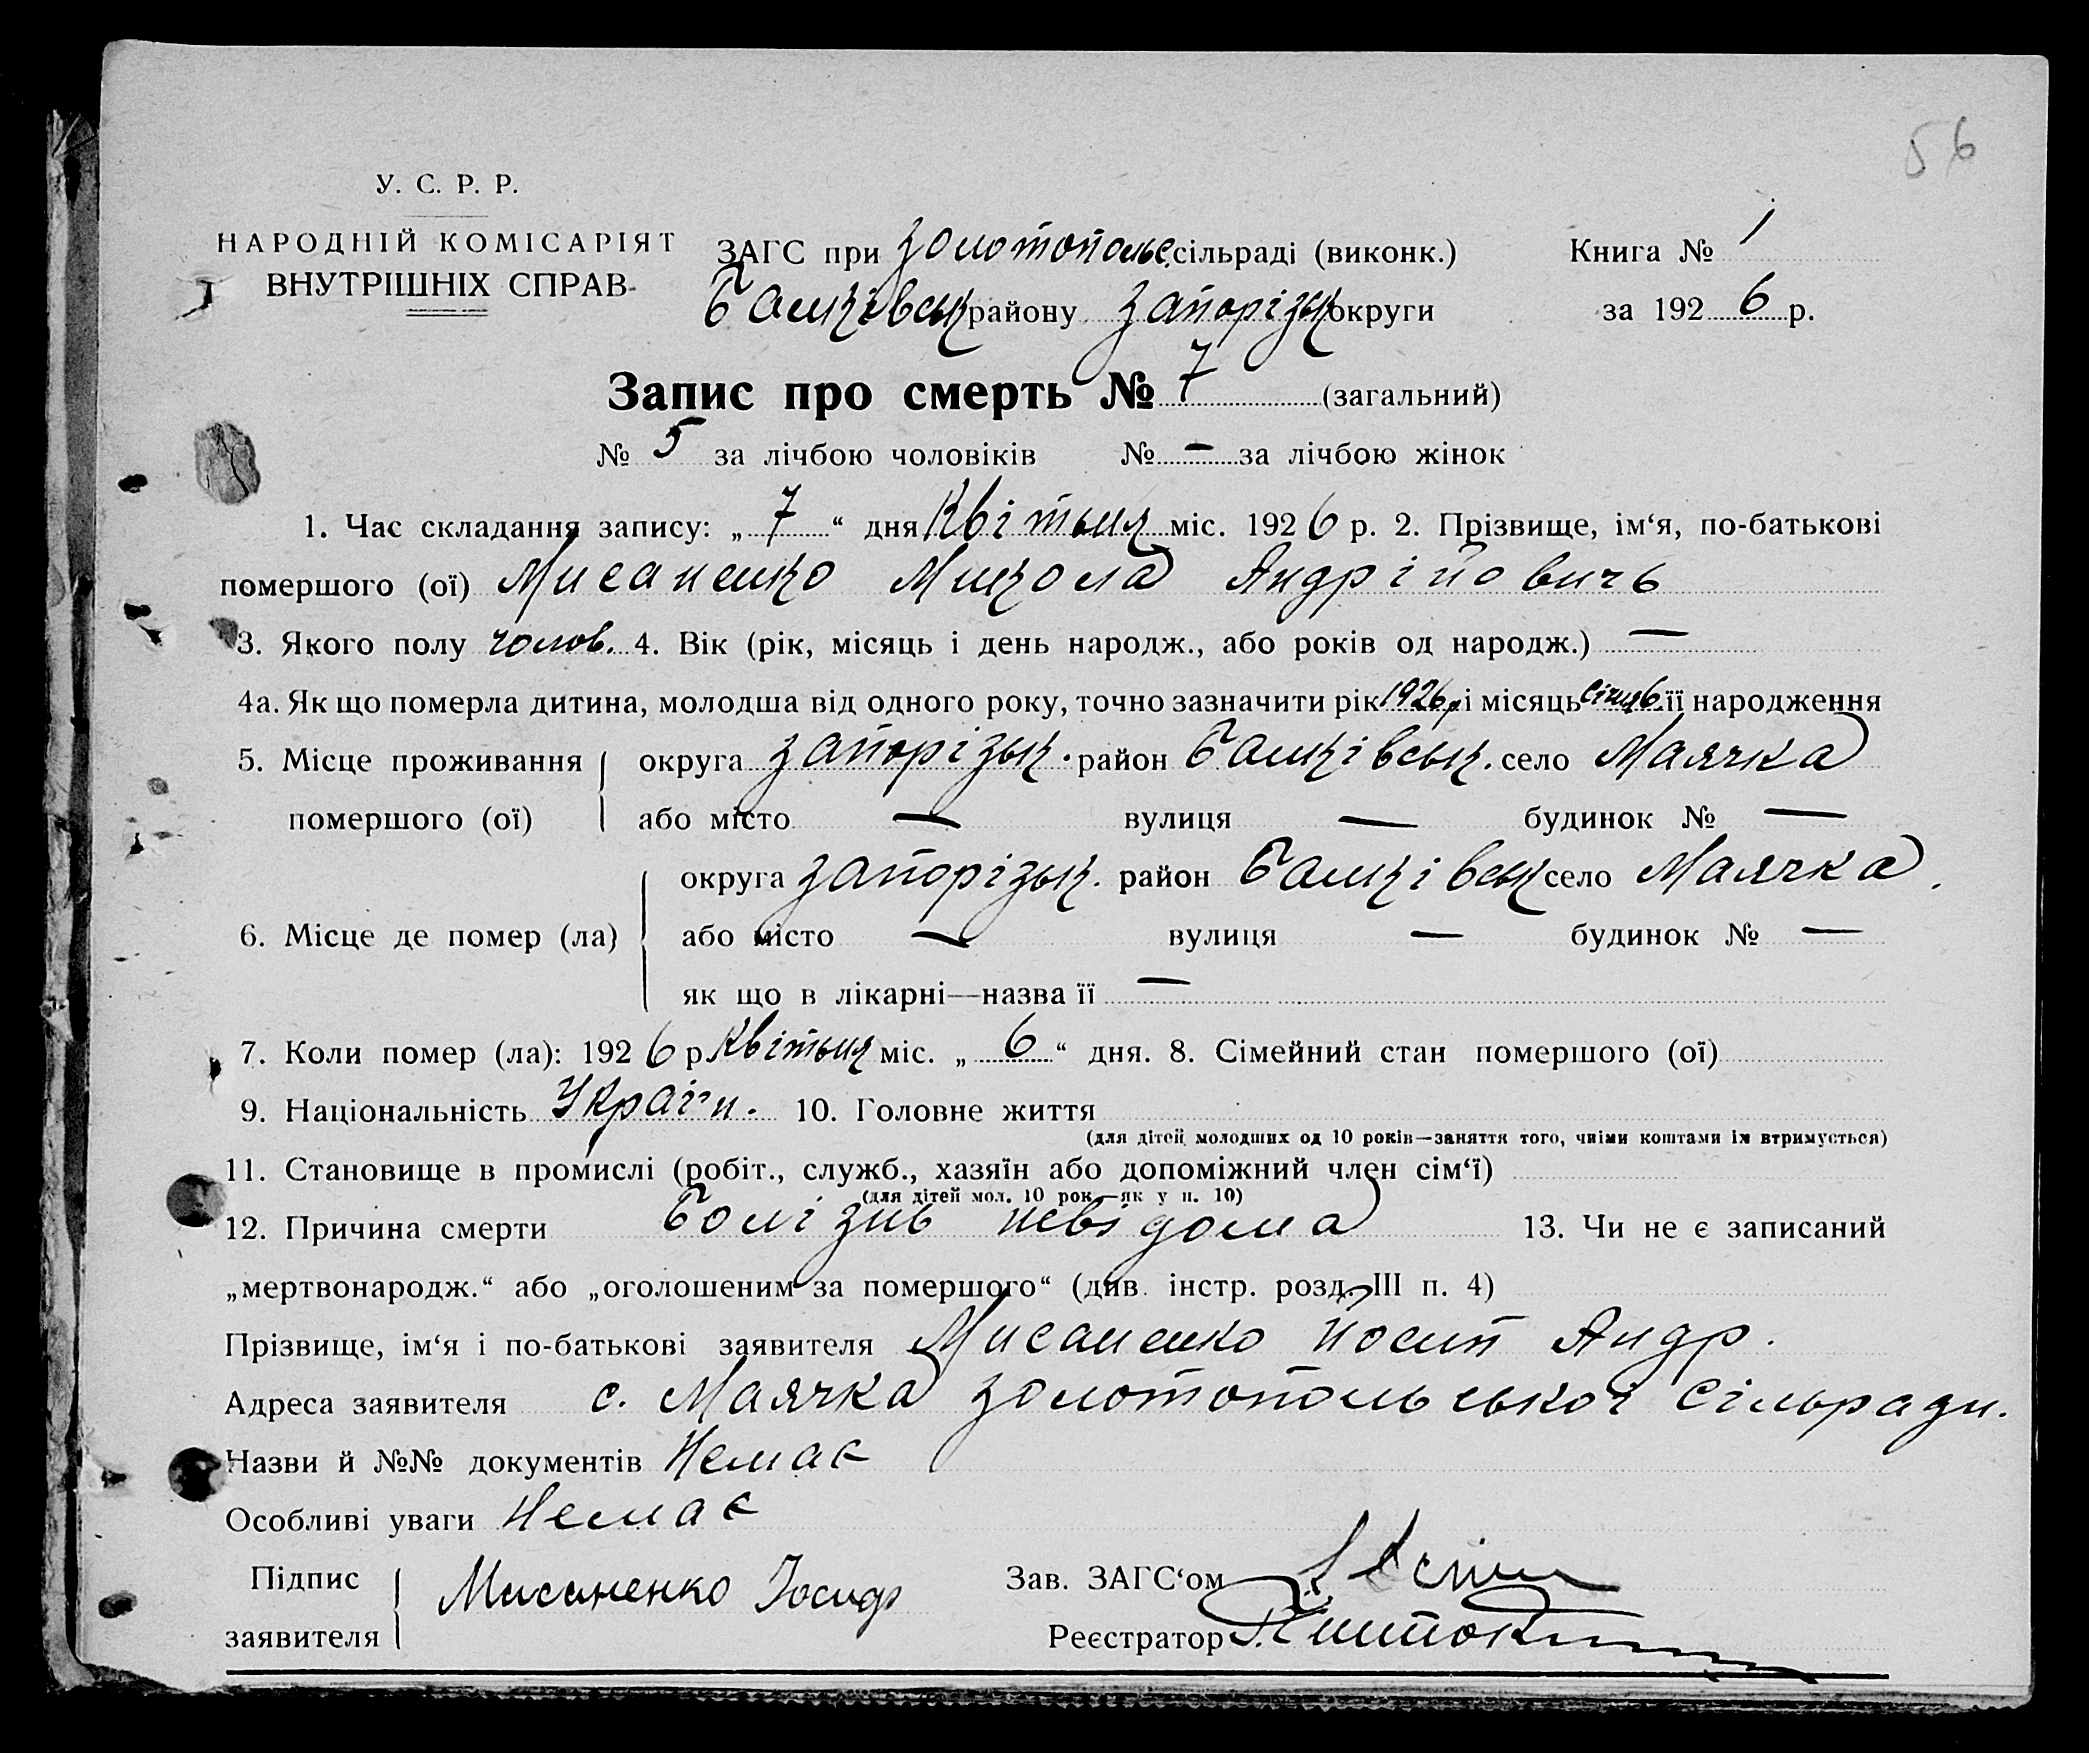 56
У. С. Р. Р.
НАРОДНІЙ КОМІСАРІЯТ
ВНУТРІШНІХ СПРАВ
ЗАГС при Золотопольс. сільраді (виконк.) Книга № 1
Балківськ району Запорізьк округи за 1926 р.
Запис про смерть № 7 (загальний)
№ 5 за лічбою чоловіків № — за лічбою жінок
1. Час складання запису: „7“ дня Квітьня міс. 1926 р. 2. Прізвище, ім‘я, по-батькові
помершого (ої) Мисаненко Микола Андрійовичь
3. Якого полу чолов. 4. Вік (рік, місяць і день народж., або років од народж.) —
4а. Як що померла дитина, молодша від одного року, точно зазначити рік 1926р і місяць січня 6 її народження
5. Місце проживання округа Запорізьк. район Балківськ. село Маячка
помершого (ої) або місто — вулиця — будинок № —
округа Запорізьк. район Балківськ село Маячка.
6. Місце де помер (ла) або місто — вулиця — будинок № —
як що в лікарні—назва її —
7. Коли помер (ла): 1926 р Квітьня міс. „6“ дня. 8. Сімейний стан помершого (ої)
9. Національність Україн. 10. Головне життя
(для дітей молодших од 10 років—заняття того, чиїми коштами їх втримується)
11. Становище в промислі (робіт., служб., хазяїн або допоміжний член сім‘ї)
(для дітей мол. 10 рок.—як у п. 10)
12. Причина смерти Болізнь невідома 13. Чи не є записаний
„мертвонародж.“ або „оголошеним за помершого“ (див. інстр. розд. III п. 4)
Прізвище, ім‘я і по-батькові заявителя Мисаненко Йосип Андр.
Адреса заявителя с. Маячка Золотопольської Сільради.
Назви й №№ документів Немає
Особливі уваги Немає
Підпис заявителя Мисаненко Іосиф Зав. ЗАГС‘ом
Реєстратор